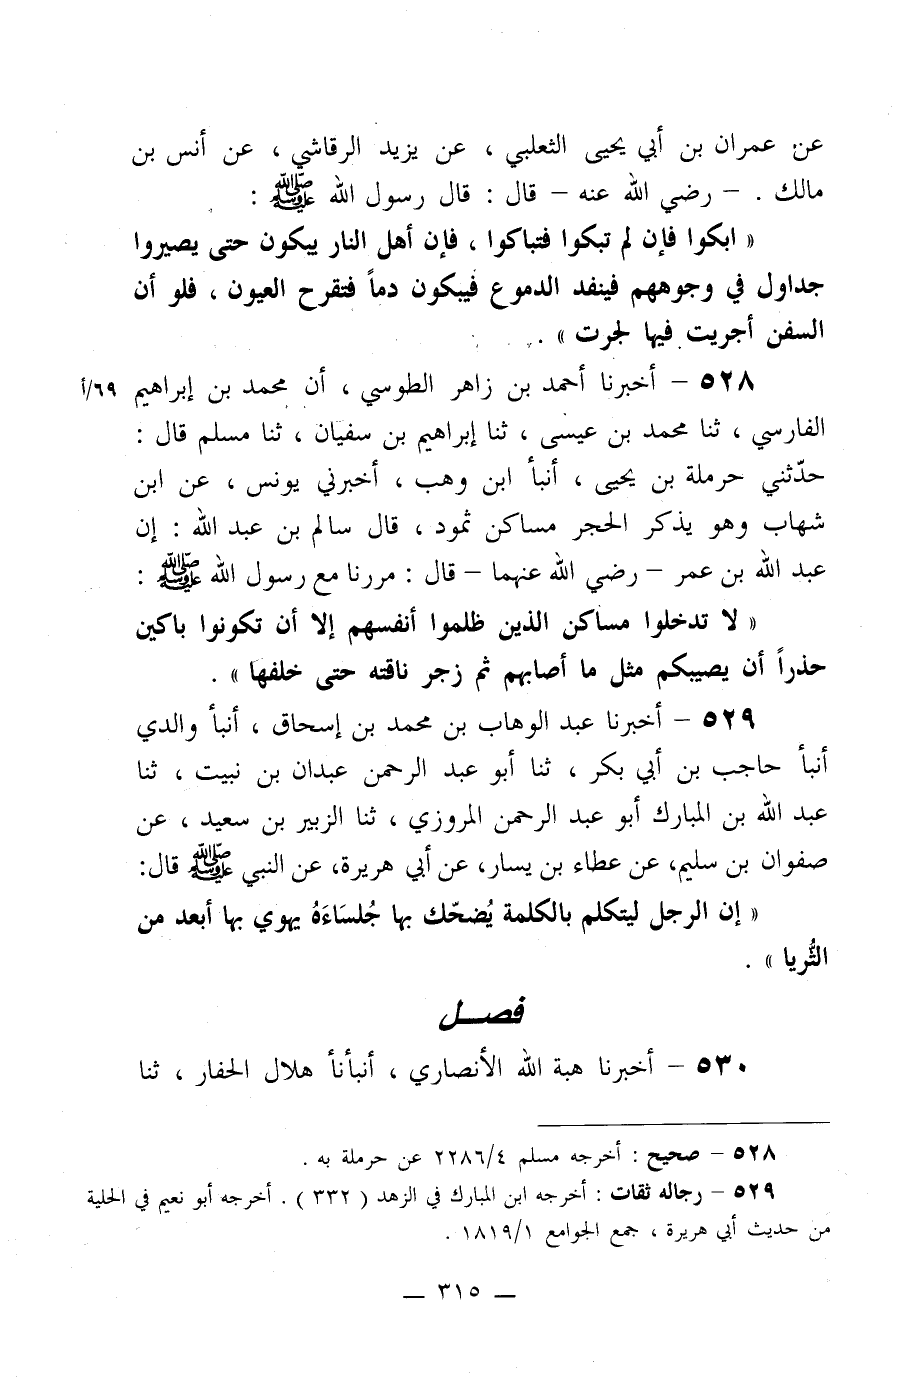 عن عمران بن أبي يحيى الثعلبي ، عن يزيد الرقاشي ، عن أنس بن
مالك . – رضي الله عنه – قال : قال رسول الله ﷺ :
« ابكوا فإن لم تبكوا فتباكوا ، فإن أهل النار يبكون حتى يصيروا
جداول في وجوههم فينفد الدموع فيبكون دماً فتقرح العيون ، فلو أن
السفن أجريت فيها لجرت » .
٥٢٨ – أخبرنا أحمد بن زاهر الطوسي ، أن محمد بن إبراهيم ٦٩/أ
الفارسي ، ثنا محمد بن عيسى ، ثنا إبراهيم بن سفيان ، ثنا مسلم قال :
حدّثني حرملة بن يحيى ، أنبأ ابن وهب ، أخبرني يونس ، عن ابن
شهاب وهو يذكر الحجر مساكن ثمود ، قال سالم بن عبد الله : إن
عبد الله بن عمر – رضي الله عنهما – قال : مررنا مع رسول الله ﷺ :
« لا تدخلوا مساكن الذين ظلموا أنفسهم إلا أن تكونوا باكين
حذراً أن يصيبكم مثل ما أصابهم ثم زجر ناقته حتى خلفها » .
٥٢٩ – أخبرنا عبد الوهاب بن محمد بن إسحاق ، أنبأ والدي
أنبأ حاجب بن أبي بكر ، ثنا أبو عبد الرحمن عبدان بن نبيت ، ثنا
عبد الله بن المبارك أبو عبد الرحمن المروزي ، ثنا الزبير بن سعيد ، عن
صفوان بن سليم، عن عطاء بن يسار، عن أبي هريرة، عن النبي ﷺ قال:
« إن الرجل ليتكلم بالكلمة يُضحّك بها جُلسَاءَهُ يهوي بها أبعد من
الثُّريا » .
فصــل
٥٣٠ – أخبرنا هبة الله الأنصاري ، أنبأنأ هلال الحفار ، ثنا
٥٢٨ – صحيح : أخرجه مسلم ٢٢٨٦/٤ عن حرملة به .
٥٢٩ – رجاله ثقات : أخرجه ابن المبارك في الزهد ( ٣٣٢ ) . أخرجه أبو نعيم في الحلية
من حديث أبي هريرة ، جمع الجوامع ١٨١٩/١ .
— ٣١٥ —